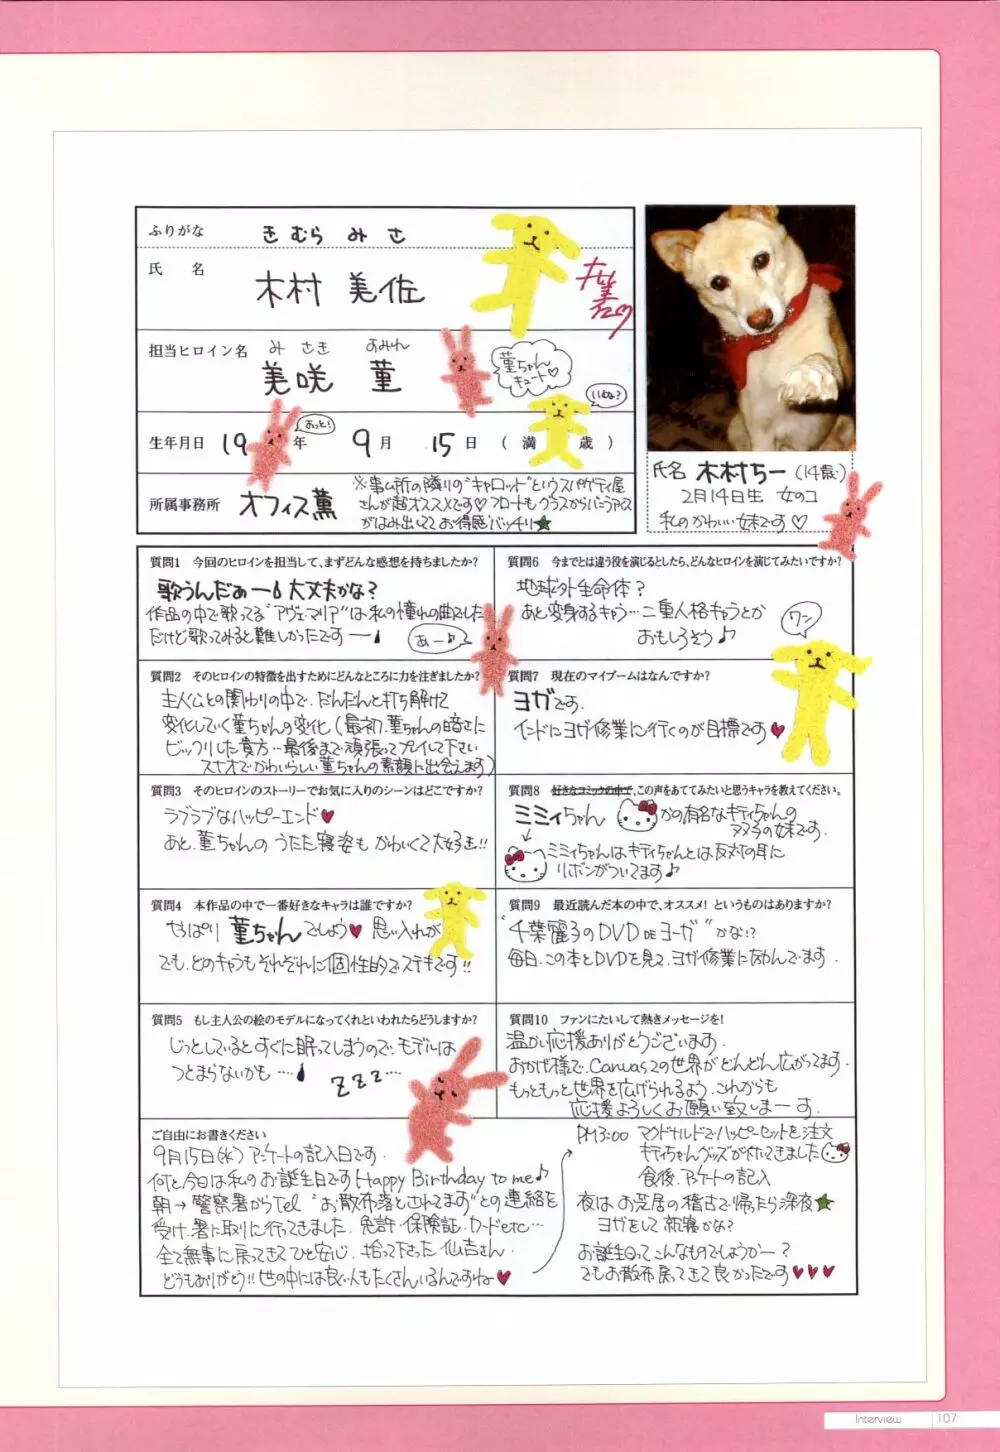 ふりがな きむら みさ
氏 名 木村 美佐
担当ヒロイン名 みさき すみれ
美咲 菫
菫ちゃん
キュート♡
いぬ?
おっと!
生年月日 19 年 9月 15日 (満 歳)
所属事務所 オフィス薫
※事ム所の隣りの"キャロット"というスパゲティ屋
さんが超オススメです♡フロートもグラスからバニラアイス
がはみ出いててお得感バッチリ★
氏名 木村ちー (14歳)
2月14日生 女のコ
私のかわいい妹です♡
質問1 今回のヒロインを担当して、まずどんな感想を持ちましたか?
歌うんだぁー 大丈夫かな?
作品の中で歌ってる"アヴェ・マリア"は私の憧れの曲でした
だけど歌ってみると難しかったです
あー♪
質問2 そのヒロインの特徴を出すためにどんなところに力を注ぎましたか?
主人公との関わりの中で、だんだんと打ち解けて
変化していく菫ちゃんの変化(最初、菫ちゃんの暗さに
ビックリした貴方…最後まで頑張ってプレイして下さい
スナオでかわいらしい菫ちゃんの素顔に出会えます)
質問3 そのヒロインのストーリーでお気に入りのシーンはどこですか?
ラブラブなハッピーエンド♥
あと、菫ちゃんのうたた寝姿もかわいくて大好き!!
質問4 本作品の中で一番好きなキャラは誰ですか?
やっぱり 菫ちゃんでしょう♥ 思い入れが
でも、どのキャラもそれぞれに個性的でステキです!!
質問5 もし主人公の絵のモデルになってくれといわれたらどうしますか?
じっとしているとすぐに眠ってしまうので、モデルは
つとまらないかも……
ZZZ…
質問6 今までとは違う役を演じるとしたら、どんなヒロインを演じてみたいですか?
地球外生命体?
あと変身するキャラ…二重人格キャラとか
おもしろそう♪
ワン
質問7 現在のマイブームはなんですか?
ヨガです。
インドにヨガ修業に行くのが目標です♥
質問8 好きなコミックの中で、この声をあててみたいと思うキャラを教えてください。
ミミィちゃん かの有名なキティちゃんの
双子の妹です。
ミミィちゃんはキティちゃんとは反対の耳に
リボンがついてます♪
質問9 最近読んだ本の中で、オススメ! というものはありますか?
"千葉麗子のDVD DE ヨーガ"かな!?
毎日、この本とDVDを見て、ヨガ修業に励んでます。
質問10 ファンにたいして熱きメッセージを!
温かい応援ありがとうございます。
おかげ様で、Canvas2の世界がどんどん広がってます。
もっともっと世界を広げられるよう、これからも
応援よろしくお願い致しまーす。
ご自由にお書きください
9月15日(水)アンケートの記入日です。
何と今日は私のお誕生日です Happy Birthday to me♪
朝→警察署からTel "お散布落とされてます"との連絡を
受け、署に取りに行ってきました。免許・保険証・カードetc…
全て無事に戻ってきてひと安心。拾って下さった仏吉さん、
どうもありがとう!!世の中には良い人もたくさんいるんですね♥
PM3:00 マクドナルドでハッピーセットを注文
キティちゃんグッズが付いてきました
食後、アンケートの記入
夜はお芝居の稽古で帰ったら深夜★
ヨガをして就寝かな?
お誕生日ってこんなものでしょうかー?
でもお散布戻ってきて良かったです♥♥♥
Interview 107